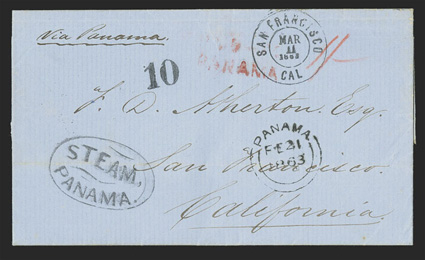 Via Panama.
10
PANAMA
SAN FRANCISCO
MAR
11
1863
CAL
F. D. Atherton. Esq.
PANAMA
FE 21
1863
STEAM,
PANAMA.
San Francisco.
California.